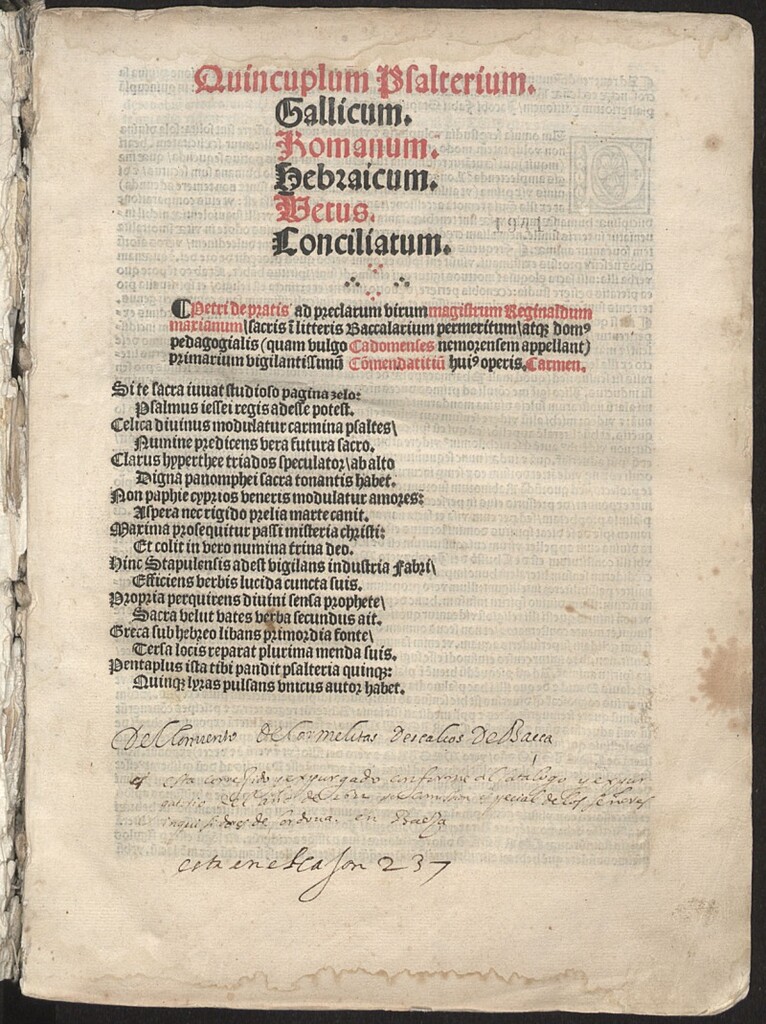 Quincuplum Psalterium.
Gallicum.
Romanum.
Hebraicum.
Vetus.
Conciliatum.
1941
Petri de pratis ad preclarum virum magistrum Reginaldum
maxianum\sacris ī litteris Baccalarium permeritum/atqꝫ domꝰ
pedagogialis (quam vulgo Cadomenses nemorensem appellant)
primarium vigilantissimū Cōmendatitiū huiꝰ operis. Carmen.
Si te sacra iuuat studioso pagina zelo:
Psalmus iessei regis adesse potest.
Celica diuinus modulatur carmina psaltes\
Numine predicens vera futura sacro.
Clarus hyperthee triados speculator\ab alto
Digna panomphei sacra tonantis habet.
Non paphie cyprios veneris modulatur amores:
Aspera nec rigido prelia marte canit.
Maxima prosequitur passi misteria christi:
Et colit in vero numina trina deo.
Hinc Stapulensis adest vigilans industria Fabri\
Efficiens verbis lucida cuncta suis.
Propria perquirens diuini sensa prophete\
Sacra velut vates verba secundus ait.
Greca sub hebreo libans primordia fonte\
Tersa locis reparat plurima menda suis.
Pentaplus ista tibi pandit psalteria quinqꝫ:
Quinqꝫ lyras pulsans vnicus autor habet.
Del Convento de Carmelitas Descalços De Baeca
esta corregido y expurgado conforme al Catalogo y expur
gatorio del año de 1632 por comision especial de los señores
inquisidores de Cordoua. en Baeça
esta en el Caxon 237